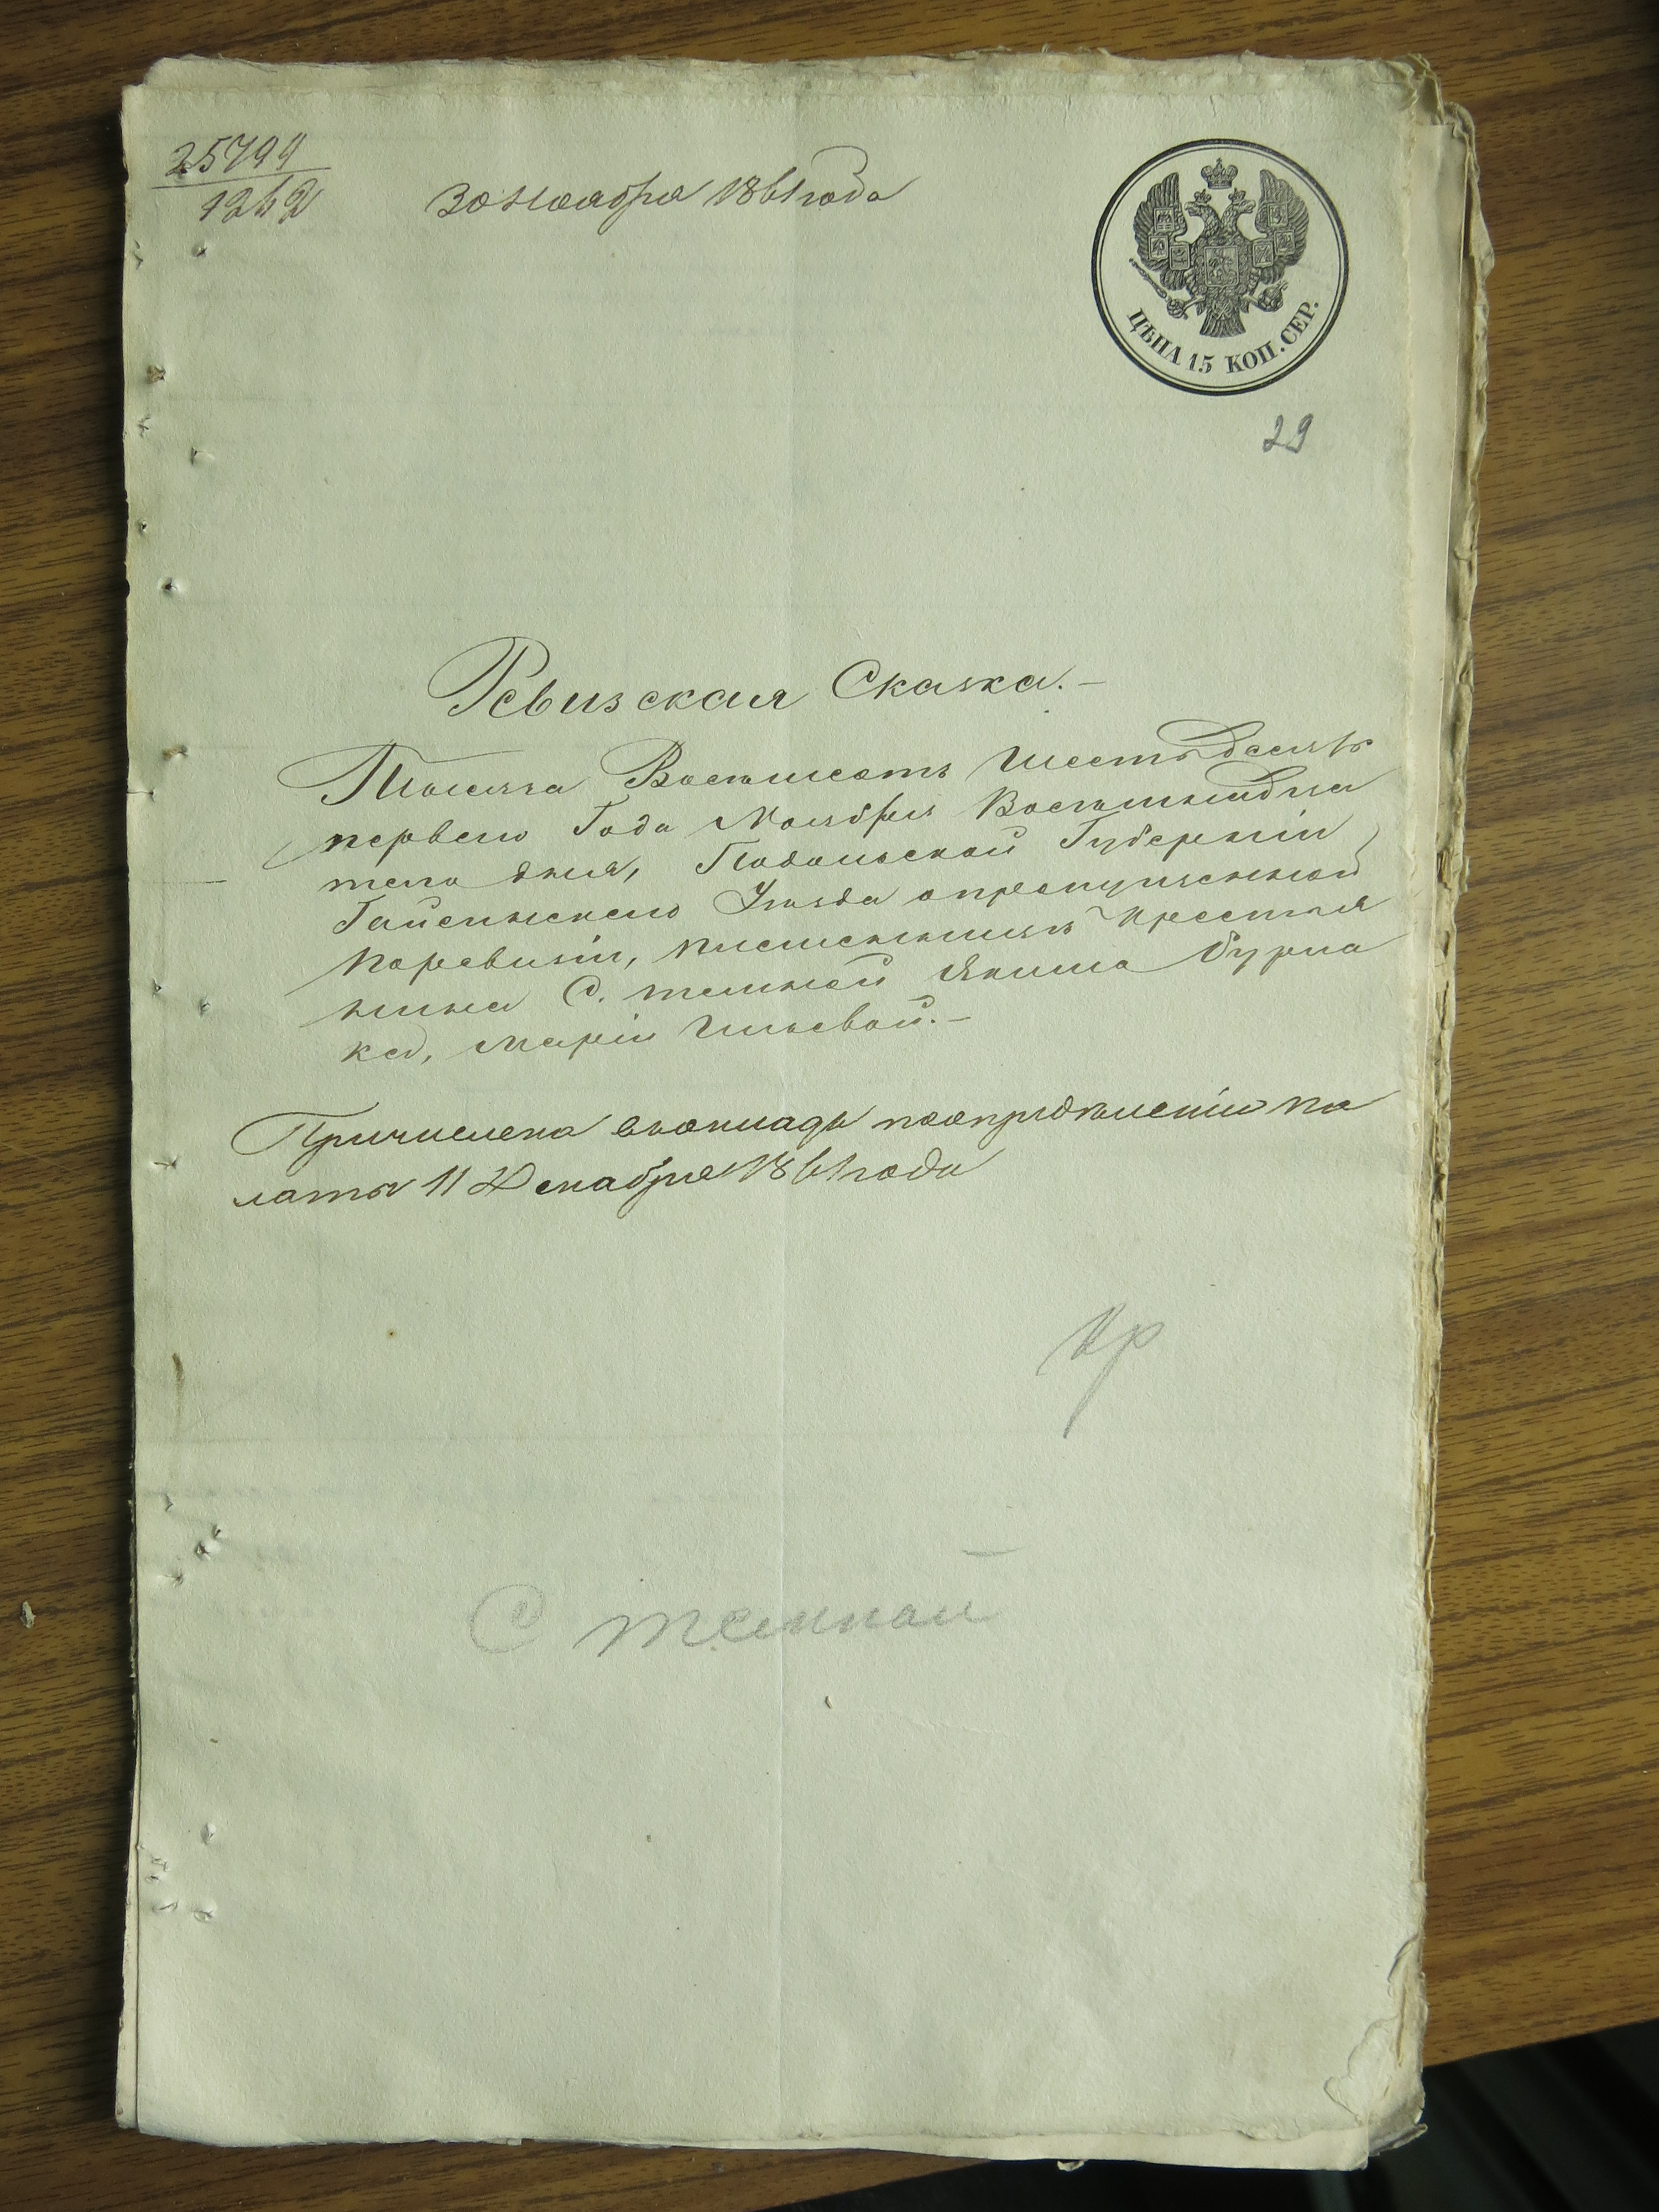 25794
1262
30 Ноября 1861 года
ЦѢНА 15 КОП. СЕР.
29
Ревизская Сказка.—
Тысяча Восемьсотъ Шестьдесятъ
первого Года Ноября Восемнадца
того дня, Подольской Губерніи
Гайсинского Уѣзда опропущенной
поревизіи, крестья
нина С. тешной Якима Бурла
ка, Маріи .—
Причислена вокладъ поопредѣленію па
латы 11 Декабря 1861 года
Кр
С